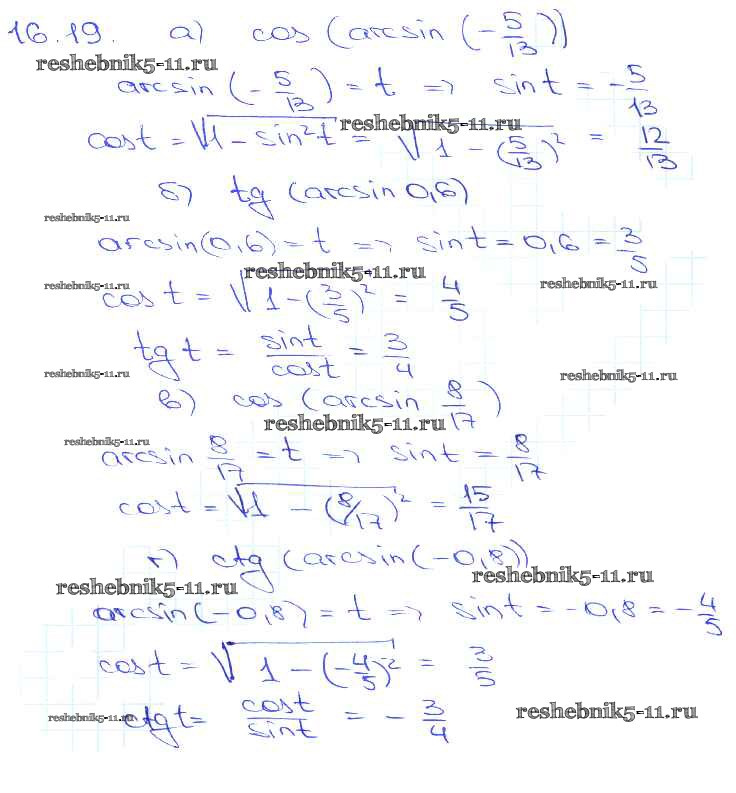 16.19. а) cos (arcsin (-5/13))
reshebnik5-11.ru
arcsin (-5/13) = t => sint = -5/13
cost = √(1 - sin²t) = √(1 - (5/13)²) = 12/13
reshebnik5-11.ru
б) tg (arcsin 0,6)
reshebnik5-11.ru
arcsin(0,6) = t => sint = 0,6 = 3/5
reshebnik5-11.ru
reshebnik5-11.ru
reshebnik5-11.ru
cost = √(1 - (3/5)²) = 4/5
tg t = sint/cost = 3/4
reshebnik5-11.ru
reshebnik5-11.ru
в) cos (arcsin 8/17)
reshebnik5-11.ru
reshebnik5-11.ru
arcsin 8/17 = t => sint = 8/17
cost = √(1 - (8/17)²) = 15/17
г) ctg (arcsin(-0,8))
reshebnik5-11.ru
reshebnik5-11.ru
arcsin(-0,8) = t => sint = -0,8 = -4/5
cost = √(1 - (-4/5)²) = 3/5
reshebnik5-11.ru
ctgt = cost/sint = -3/4
reshebnik5-11.ru